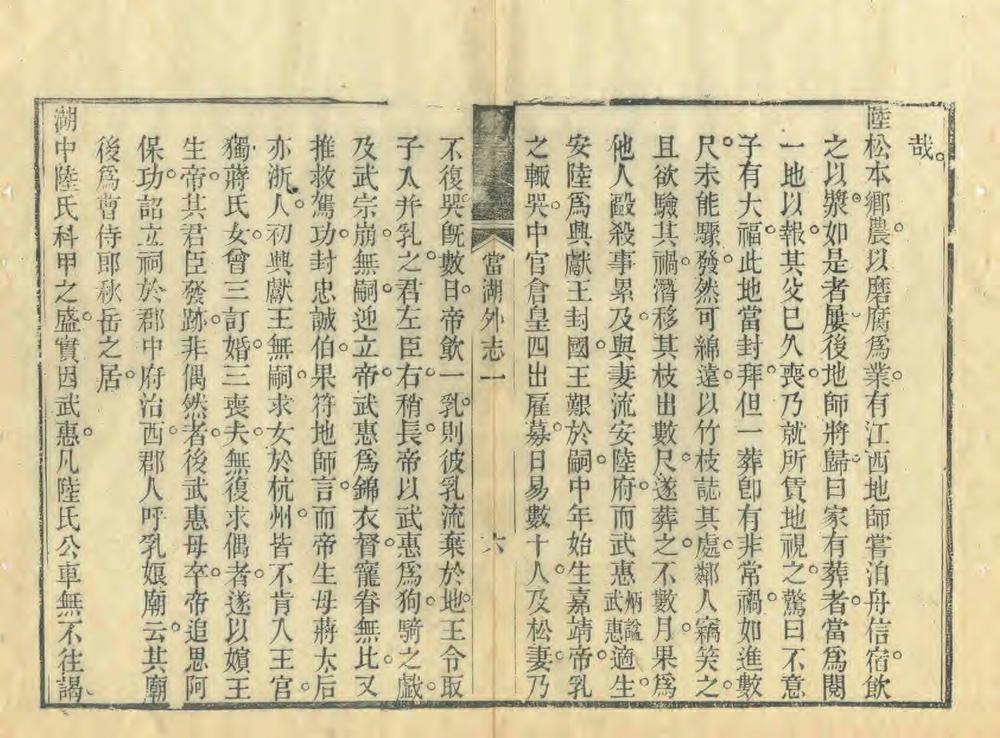 哉。
陸松本鄉農。以磨腐爲業。有江西地師嘗泊舟信宿。飲
之以漿。如是者屢後地師將歸。曰家有葬者。當爲閱
一地以報其父已久喪。乃就所賃地視之。驚曰不意
子有大福。此地當封拜。但一葬卽有非常禍。如進數
尺。未能驟發。然可綿遠。以竹枝誌其處。鄰人竊笑之。
且欲驗其禍。潛移其枝出數尺。遂葬之。不數月。果爲
他人毆殺事累及。與妻流安陸府。而武惠炳諡武惠適生。
安陸爲興獻王封國。王艱於嗣。中年始生嘉靖帝。乳
之輒哭。中官倉皇四出雇募。日易數十人。及松妻乃
當湖外志一
六
不復哭。旣數日。帝飲一乳。則彼乳流棄於地。王令取
子入并乳之。君左臣右。稍長。帝以武惠爲狗騎之戲。
及武宗崩。無嗣。迎立帝。武惠爲錦衣督。寵眷無比。又
推救駕功。封忠誠伯。果符地師言。而帝生母蔣太后
亦浙人。初興獻王無嗣。求女於杭州。皆不肯入王宮。
獨蔣氏女。曾三訂婚。三喪夫。無復求偶者。遂以嬪王
生帝。其君臣發跡。非偶然者。後武惠母卒。帝追思阿
保功。詔立祠於郡中府治西。郡人呼乳娘廟云。其廟
後爲曹侍郎秋岳之居。
湖中陸氏科甲之盛。實因武惠。凡陸氏公車無不往謁。